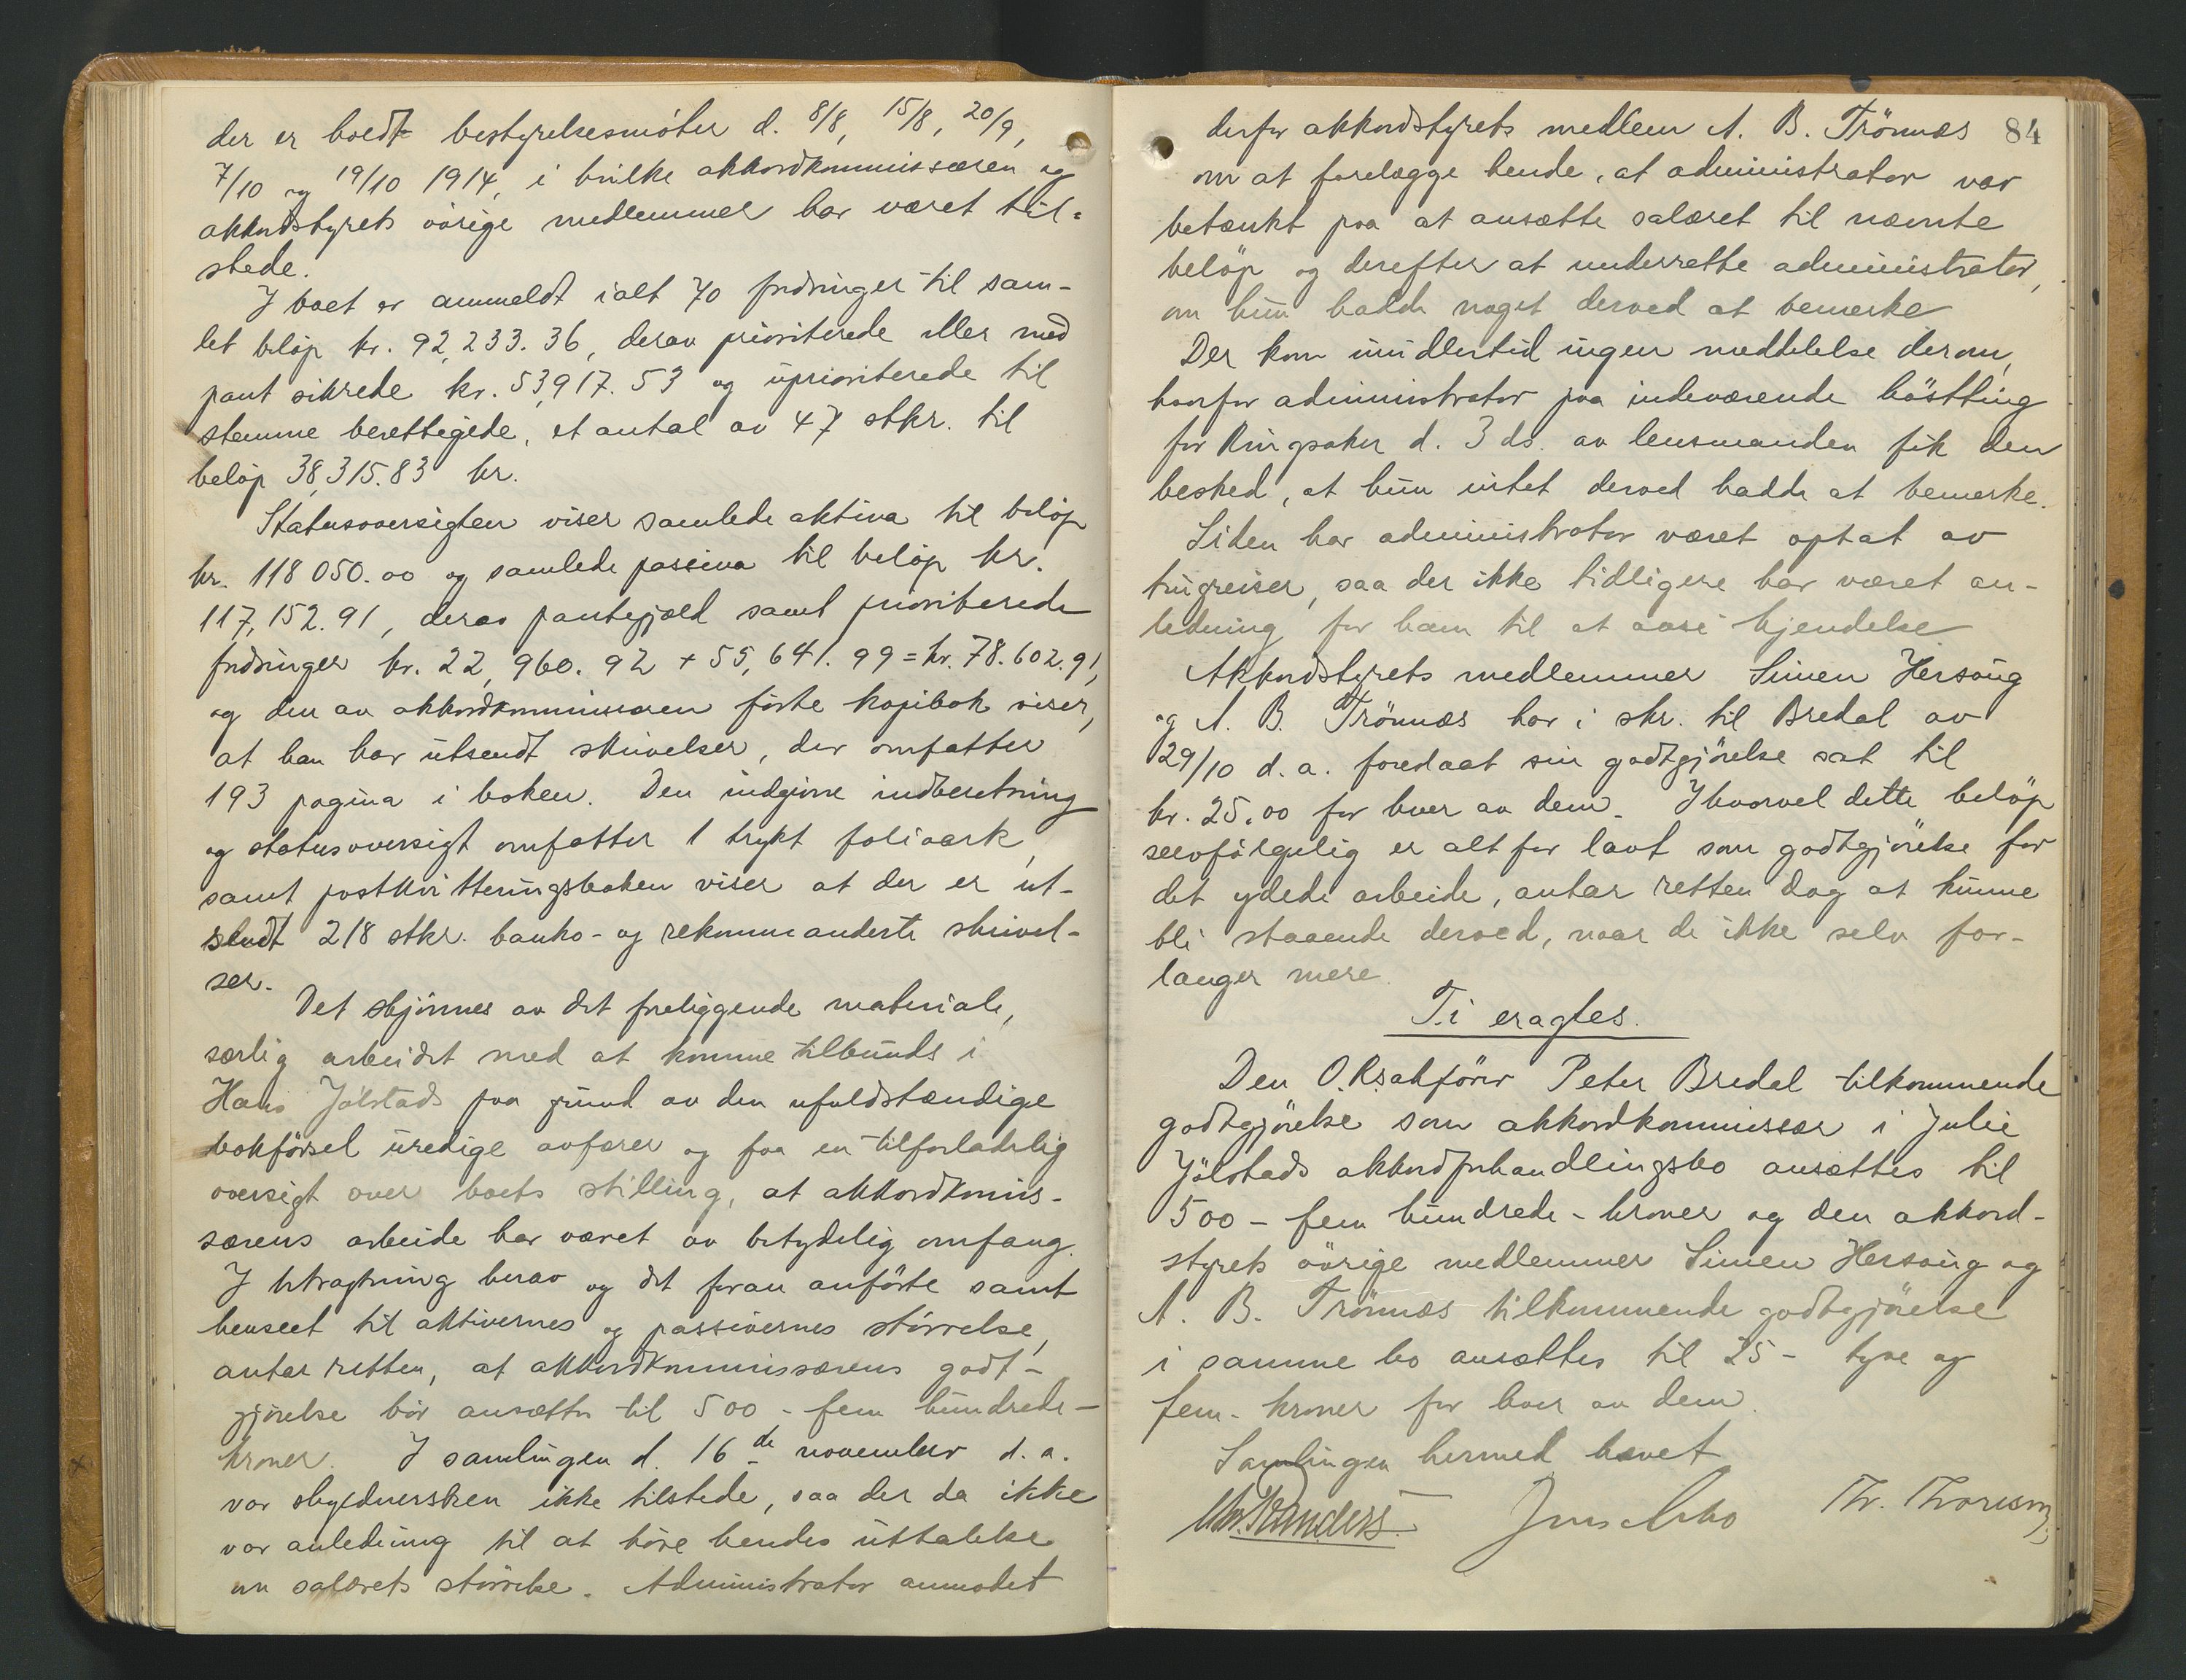 der er holdt bestyrelsesmöter d. 8/8, 15/8, 20/9,
7/10 og 19/10 1914, i hvilke akkordkommissæren og
akkordstyrets övrige medlemmer har været til-
stede.
I boet er anmeldt ialt 70 fordringer til sam-
let belöp kr. 92,233.36, derav prioriterede eller med
pant sikrede kr. 53,917.53 og uprioriterede til
stemme berettigede, et antal av 47 stkr. til
belöp 38,315.83 kr.
Statusoversigten viser samlede aktiva til belöp
kr. 118 050.00 og samlede passiva til belöp kr.
117,152.91, derav pantegjæld samt prioriterede
fordringer kr. 22,960.92 + 55,641.99 = kr. 78.602.91,
og den av akkordkommissæren förte kopibok viser,
at han har utsendt skrivelser, der omfatter
193 pagina i boken. Den indgivne indberetning
og statusoversigt omfatter 1 trykt folioark,
samt postkvitteringsboken viser at der er ut-
sendt 218 stkr. banko- og rekommanderte skrivel-
ser.
Det skjönnes av det foreliggende materiale,
særlig arbeidet med at komme tilbunds i
Hans Jölstads paa grund av den ufuldstændige
bokförsel uredige affærer og faa en tilforladelig
oversigt over boets stilling, at akkordkomis-
særens arbeide har været av betydelig omfang.
I betragtning herav og det foran anförte samt
henseet til aktivernes og passivernes störrelse,
antar retten, at akkordkommissærens godt-
gjörelse bör ansættes til 500 - fem hundrede -
kroner. I samlingen d. 16de november d. a.
var skyldnersken ikke tilstede, saa der da ikke
var anledning til at höre hendes uttalelse
om salærets störrelse. Administrator anmodet
84
derfor akkordstyrets medlem A. B. Trönnes
om at forelægge hende, at administrator var
betænkt paa at ansætte salæret til nævnte
belöp og derefter at underrette administrator,
om hun hadde noget derved at bemerke
Der kom imidlertid ingen meddelelse derom,
hvorfor administrator paa indeværende höstting
for Ringsaker d. 3 ds. av lensmanden fik den
besked, at hun intet derved hadde at bemerke.
Siden har administrator været optat av
tingreiser, saa der ikke tidligere har været an-
ledning for ham til at avsi kjendelse
Akkordstyrets medlemmer Simen Hersoug
og A. B. Trönnes har i skr. til Bredal av
29/10 d. a. foreslaat sin godtgjörelse sat til
kr. 25.00 for hver av dem. Ihvorvel dette belöp
selvfölgelig er alt for lavt som godtgjörelse for
det ydede arbeide, antar retten dog at kunne
bli staaende derved, naar de ikke selv for-
langer mere.
Ti eragtes.
Den O.R.sakförer Peter Bredal tilkommende
godtgjörelse som akkordkommissær i Julie
Jölstads akkordforhandlingsbo ansættes til
500 - fem hundrede - kroner og den akkord-
styrets övrige medlemmer Simen Hersoug og
A. B. Trönnes tilkommende godtgjörelse
i samme bo ansættes til 25 - tyve og
fem - kroner for hver av dem.
Samlingen hermed hævet
Randers. Th.